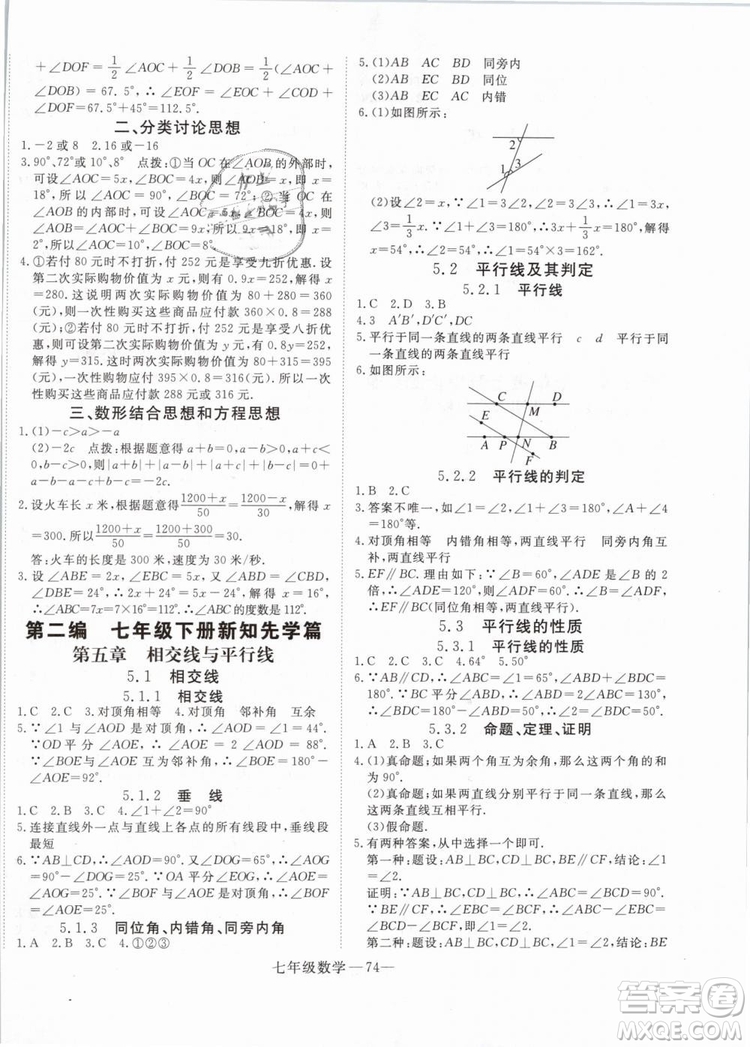 +∠DOF=1/2∠AOC+1/2∠DOB=1/2(∠AOC+
∠DOB)=67.5°,∴∠EOF=∠EOC+∠DOF+
∠COD=67.5°+45°=112.5°.
二、分类讨论思想
1.-2或8 2.16或-16
3.90°,72°或18° 点拨:①当OC在∠AOB的外部时,
可设∠BOC=4x,则∠AOC=x,所以4x+x=90°,x=
18°,所以∠AOC=18°,∠BOC=72°;②当OC在
∠AOB的内部时,可设∠BOC=4x,则∠AOC=x,
∠AOC+∠BOC=∠AOB,所以4x+x=90°,x=
18°,所以∠AOC=18°,则∠BOC=72°.
4.①若付80元时不打折,付252元时享受九折优惠.设
第二次实际购物价值为x元,那么有0.9x=252,解得
x=280.故这两次实际购物价值为80+280=360
(元),一次性购买这些商品应付款360×0.8=288
(元);②若付80元时不打折,付252元时享受八折
优惠.设第二次实际购物价值为y元,有0.8y=
252,解得y=315.故两次实际购物价值为80+315=
395(元),一次性购物应付395×0.8=316(元).所以
此人一次性购买这些商品应付款288元或316元.
三、数形结合思想和方程思想
1.(1)-c>a>-a
(2)-2c 点拨:根据题意得a+b=0,a+b+c<
0,b-c>0,则|a+b|-|a+b+c|-|b-c|=0+a+
b+c-b+c=a+2c.
2.设火车长x米,根据题意得(1200+x)/50=(1200-x)/30,解得
x=300.所以(1200+x)/50=(1200+300)/50=30.
答:火车的长度是300米,速度为30米/秒.
3.设∠ABE=2x°,得2x+28=5x-2x+14,解得x
=16,∴∠ABC=7x=7×16°=112°.∴∠ABC的度数是112°.
第二编 七年级下册新知先学篇
第五章 相交线与平行线
5.1 相交线
5.1.1 相交线
1.C 2.C 3.对顶角相等 4.对顶角 邻补角 互余
5.∵∠1与∠AOD是对顶角,∴∠AOD=∠1=44°.
∵OD平分∠AOE,∴∠AOE=2∠AOD=88°,
∵∠BOE与∠AOE互为邻补角,∴∠BOE=180°
-∠AOE=92°.
5.1.2 垂线
1.C 2.A 3.C 4.∠1+∠2=90°
5.连接直线外一点与直线上各点的所有线段中,垂线段
最短
6.∵AB⊥CD,∴∠AOD=90°.又∠DOG=65°,∴
∠AOG=90°-65°=25°.∵OA平分∠EOG,∴∠AOE
=∠AOG=25°.∵∠BOF与∠AOE是对顶角,∴
∠BOF=∠AOE=25°.
5.1.3 同位角、内错角、同旁内角
1.A 2.B 3.C 4.①②③
5.(1)AB AC BD 同旁内
(2)AB EC BD 同位
(3)AB EC AC 内错
6.(1)如图所示:
2
1
3
(2)设∠3=x,∵∠1=∠2,∠2=∠3,∴∠1=
3∠2=3x.∵∠1+∠3=180°,∴3x+x=180°,解得
x=54°,∴∠3=54°,∠1=3×54°=162°.
5.2 平行线及其判定
5.2.1 平行线
1.C 2.D 3.B
4.3 A′B′,D′C′,DC
5.平行于同一条直线的两条直线平行 c d 平行于同
一条直线的两条直线平行
6.如图所示:
C M D
E
F
A P N B
5.2.2 平行线的判定
1.B 2.C
3.答案不唯一,如∠1=∠2,∠1+∠3=180°,∠3+
∠4=180°.
4.对顶角相等 内错角相等,两直线平行 同旁内角互
补,两直线平行
5.EF∥BC.理由如下:∵∠B=60°,∠ADE是∠B的2
倍,∴∠ADE=120°,∵∠ADE+∠ADF=180°,∴
∠ADF=60°,∵∠B=60°,∴∠B=∠ADF=
60°.∴EF∥BC(同位角相等,两直线平行).
5.3 平行线的性质
5.3.1 平行线的性质
1.C 2.C 3.C 4.64° 5.50°
6.∵AB∥CD,∴∠ABC=∠1=65°,∠ABD+∠BDC=
180°.∵BC平分∠ABD,∴∠ABD=2∠ABC=130°,
∴∠BDC=180°-∠ABD=50°,∴∠2=∠BDC=50°.
5.3.2 命题、定理、证明
1.A 2.B 3.C
4.(1)真命题:如果两个角互为余角,那么这两个角的
和为90°.
(2)真命题:如果两直线分别平行于同一条直线,那么
这两条直线互相平行.
(3)假命题.
5.有两种答案,从中选择一个即可.
第一种:题设:AB⊥BC,CD⊥BC,BE∥CF.结论:∠1
=∠2.
证明:∵AB⊥BC,CD⊥BC,∴∠ABC=∠DCB=90°.
∵BE∥CF,∴∠EBC=∠FCB,∴∠1=∠2.
第二种:题设:AB⊥BC,CD⊥BC,∠1=∠2.结论:BE
七年级数学—74—
答案圈
MXQE.COM